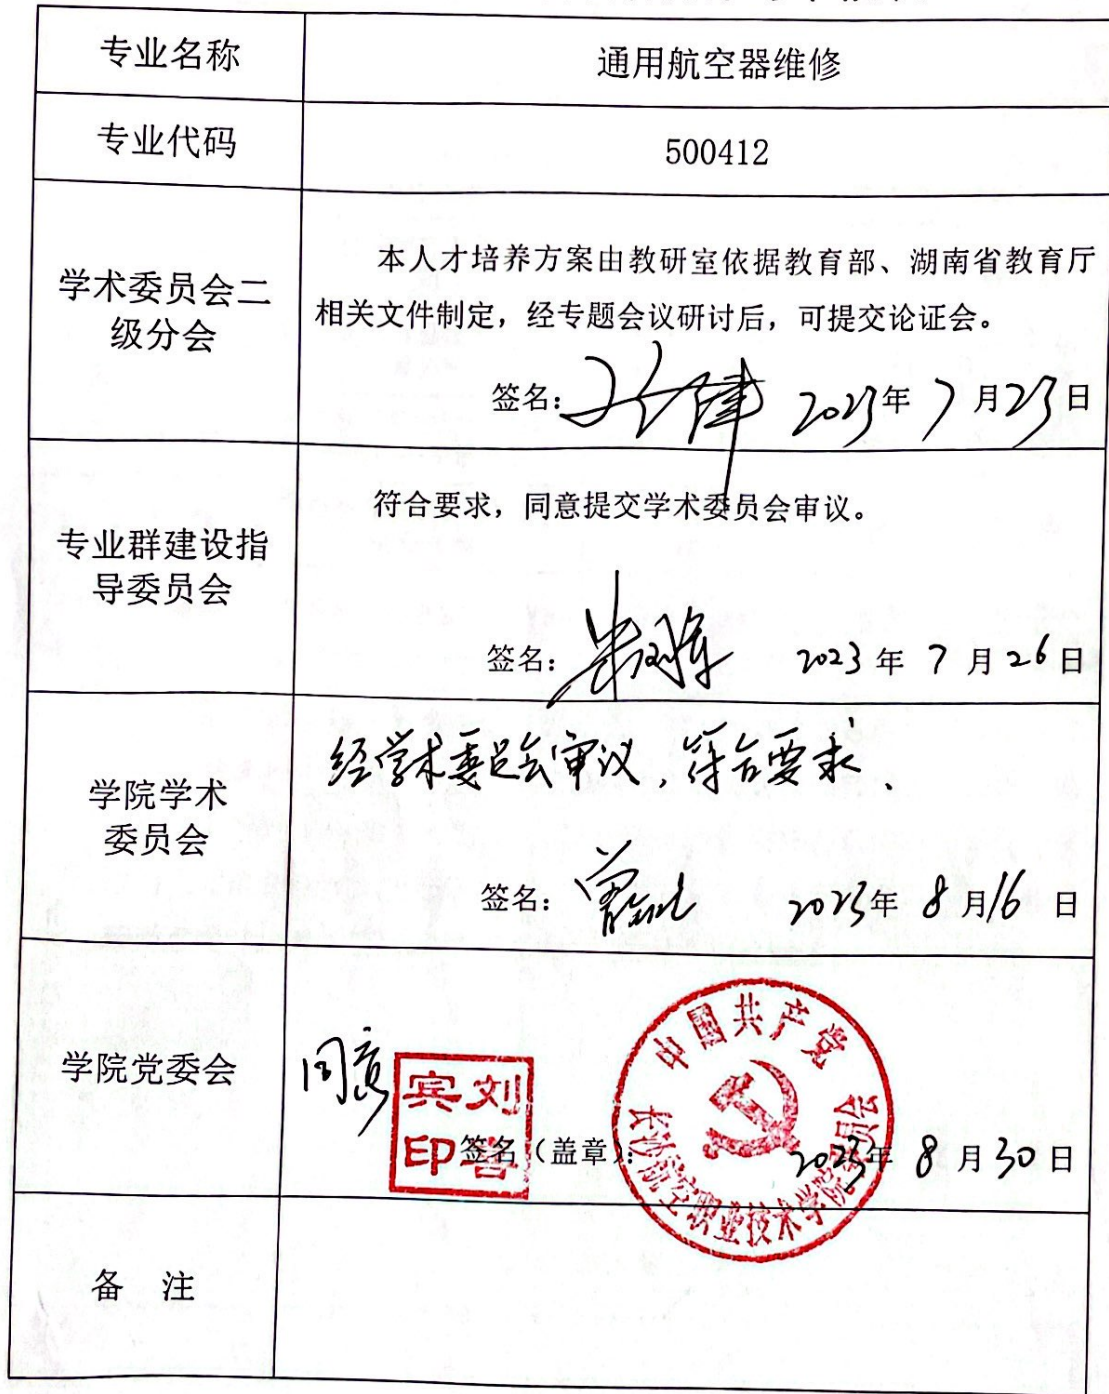 专业名称
通用航空器维修
专业代码
500412
学术委员会二
级分会
本人才培养方案由教研室依据教育部、湖南省教育厅
相关文件制定，经专题会议研讨后，可提交论证会。
签名： 2023年7月23日
专业群建设指
导委员会
符合要求，同意提交学术委员会审议。
签名： 2023年7月26日
学院学术
委员会
经学术委员会审议，符合要求、
签名： 2023年8月16日
学院党委会
同意
宾刘
印善
签名（盖章）： 2023年8月30日
中国共产党
长沙航空职业技术学院委员会
备 注